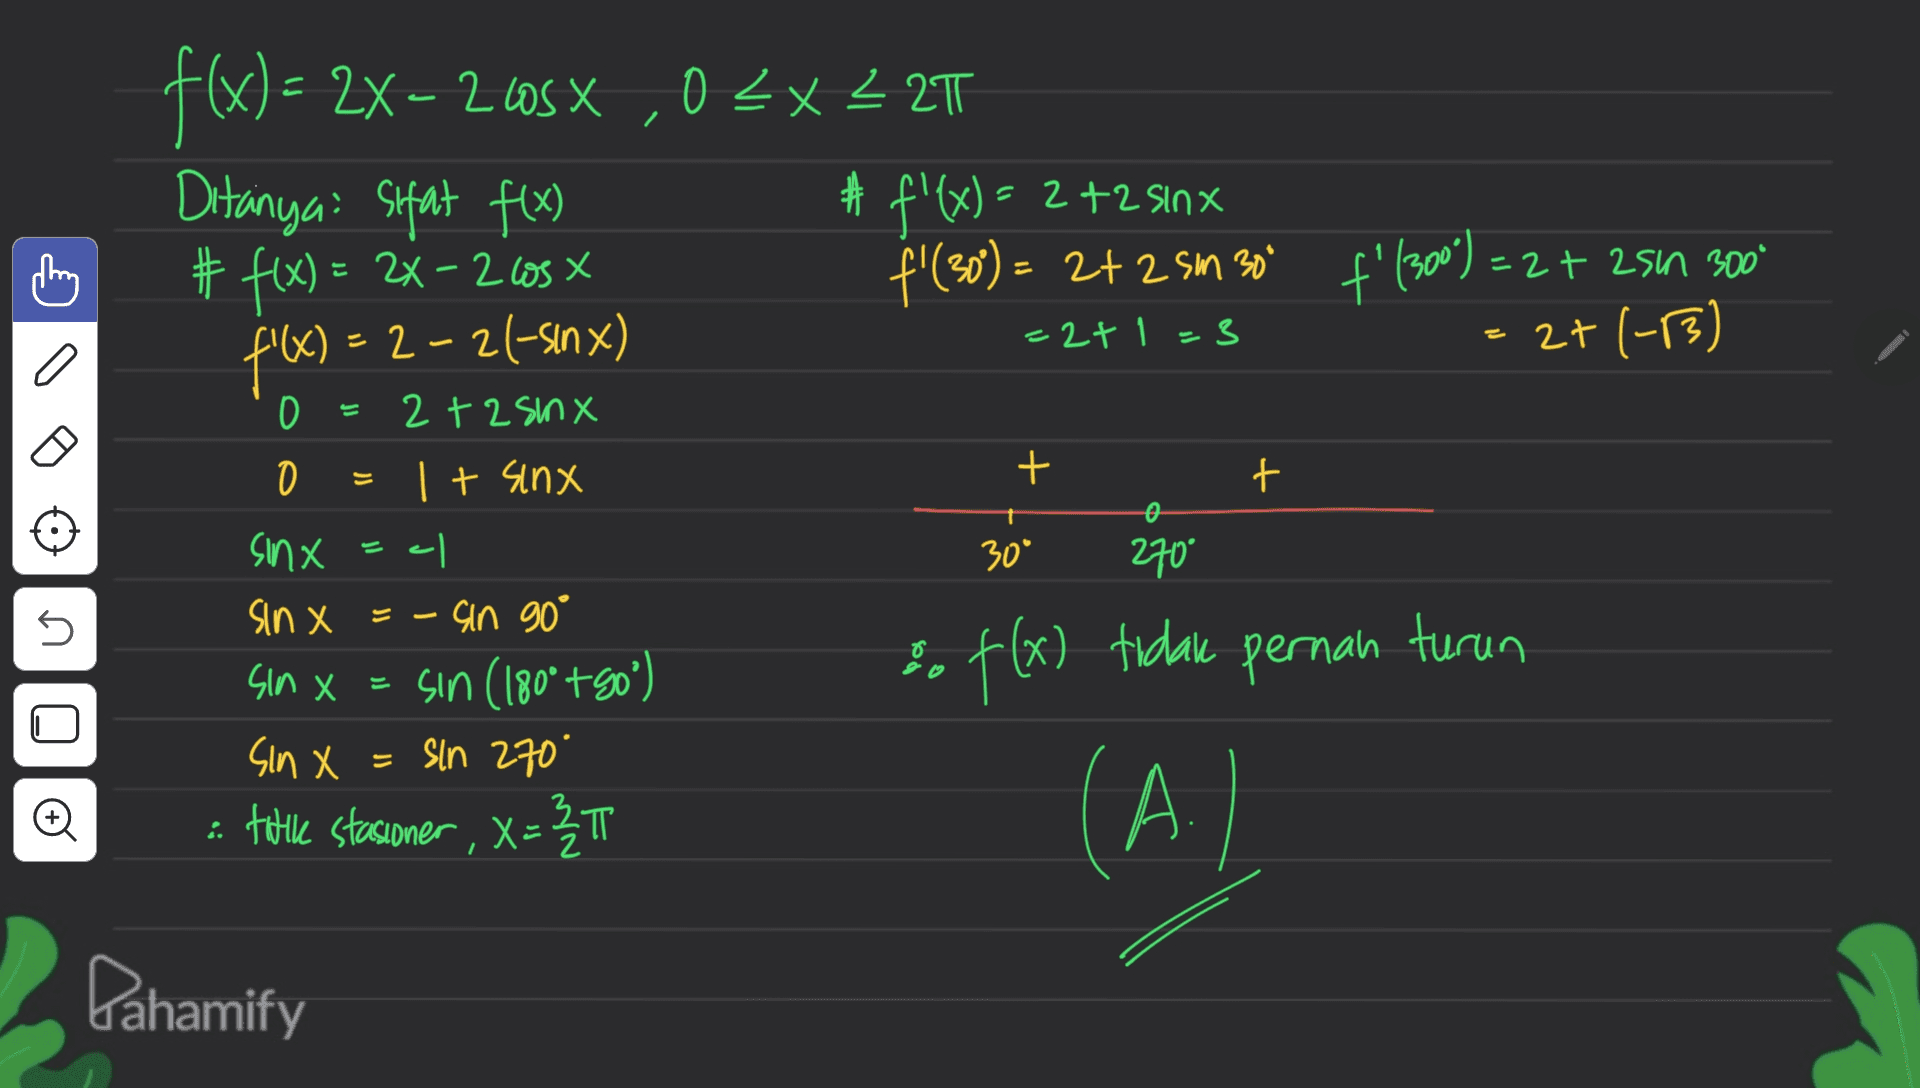 f(x) = 2x - 2 cos x , 0 ≤ x ≤ 2π
Ditanya: sifat f(x)
# f(x) = 2x - 2 cos x
f'(x) = 2 - 2(-sin x)
0 = 2 + 2 sin x
0 = 1 + sin x
sin x = -1
sin x = - sin 90°
sin x = sin (180° + 90°)
sin x = sin 270°
∴ titik stasioner, x = 3/2 π
# f'(x) = 2 + 2 sin x
f'(30°) = 2 + 2 sin 30°
= 2 + 1 = 3
f'(300°) = 2 + 2 sin 300°
= 2 + (-√3)
+ +
0
30° 270°
∴ f(x) tidak pernah turun
(A.)
Pahamify